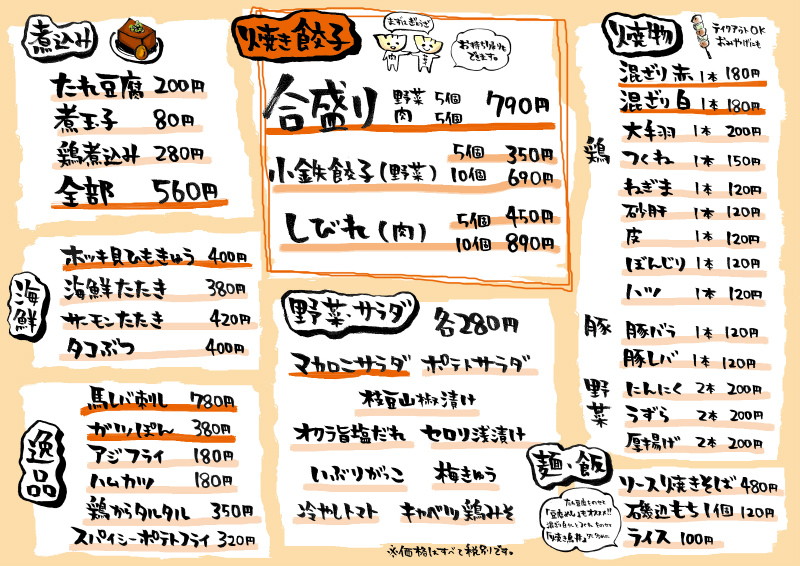 煮込み
たれ豆腐 200円
煮玉子 80円
鶏煮込み 280円
全部 560円
焼き餃子
まずはぎょうざ
肉
お持ち帰りも
できます。
合盛り 野菜 5個 790円
肉 5個
小鉄餃子(野菜) 5個 350円
10個 690円
しびれ(肉) 5個 450円
10個 890円
焼物
テイクアウトOK
おみやげにも
鶏
混ざり赤 1本 180円
混ざり白 1本 180円
大手羽 1本 200円
つくね 1本 150円
ねぎま 1本 120円
砂肝 1本 120円
皮 1本 120円
ぼんじり 1本 120円
ハツ 1本 120円
豚
豚バラ 1本 120円
豚レバ 1本 120円
野菜
にんにく 2本 200円
うずら 2本 200円
厚揚げ 2本 200円
海鮮
ホッキ貝ひもきゅう 400円
海鮮たたき 380円
サーモンたたき 420円
タコぶつ 400円
逸品
馬レバ刺し 780円
ガツぽん 380円
アジフライ 180円
ハムカツ 180円
鶏からタルタル 350円
スパイシーポテトフライ 320円
野菜・サラダ 各280円
マカロニサラダ ポテトサラダ
枝豆山椒漬け
オクラ旨塩だれ セロリ浅漬け
いぶりがっこ 梅きゅう
冷やしトマト キャベツ鶏みそ
※価格はすべて税別です。
麺・飯
ソース焼きそば 480円
磯辺もち1個 120円
ライス 100円